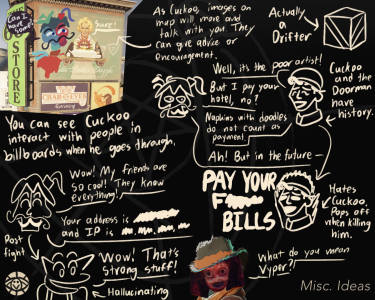 Can I
have
some?
Sure!
STORE
CRAB
As Cuckoo, images on
map will move and
talk with you. They
can give advice or
encouragement.
Actually
a
Drifter
Well, it's the poor artist!
But I pay your
hotel, no?
Napkins with doodles
do not count as
payment.
Ah! But in the future—
Cuckoo
and the
Doorman
have
history.
You can see Cuckoo
interact with people in
billboards when he goes through.
PAY YOUR
BILLS
Hates
Cuckoo.
Pops off
when
killing
him.
Wow! My friends are
so cool! They know
everything!
Your address is
and IP is
Post
fight
Wow! That's
strong stuff!
Hallucinating
What do you mean
Vyper?
Misc. Ideas